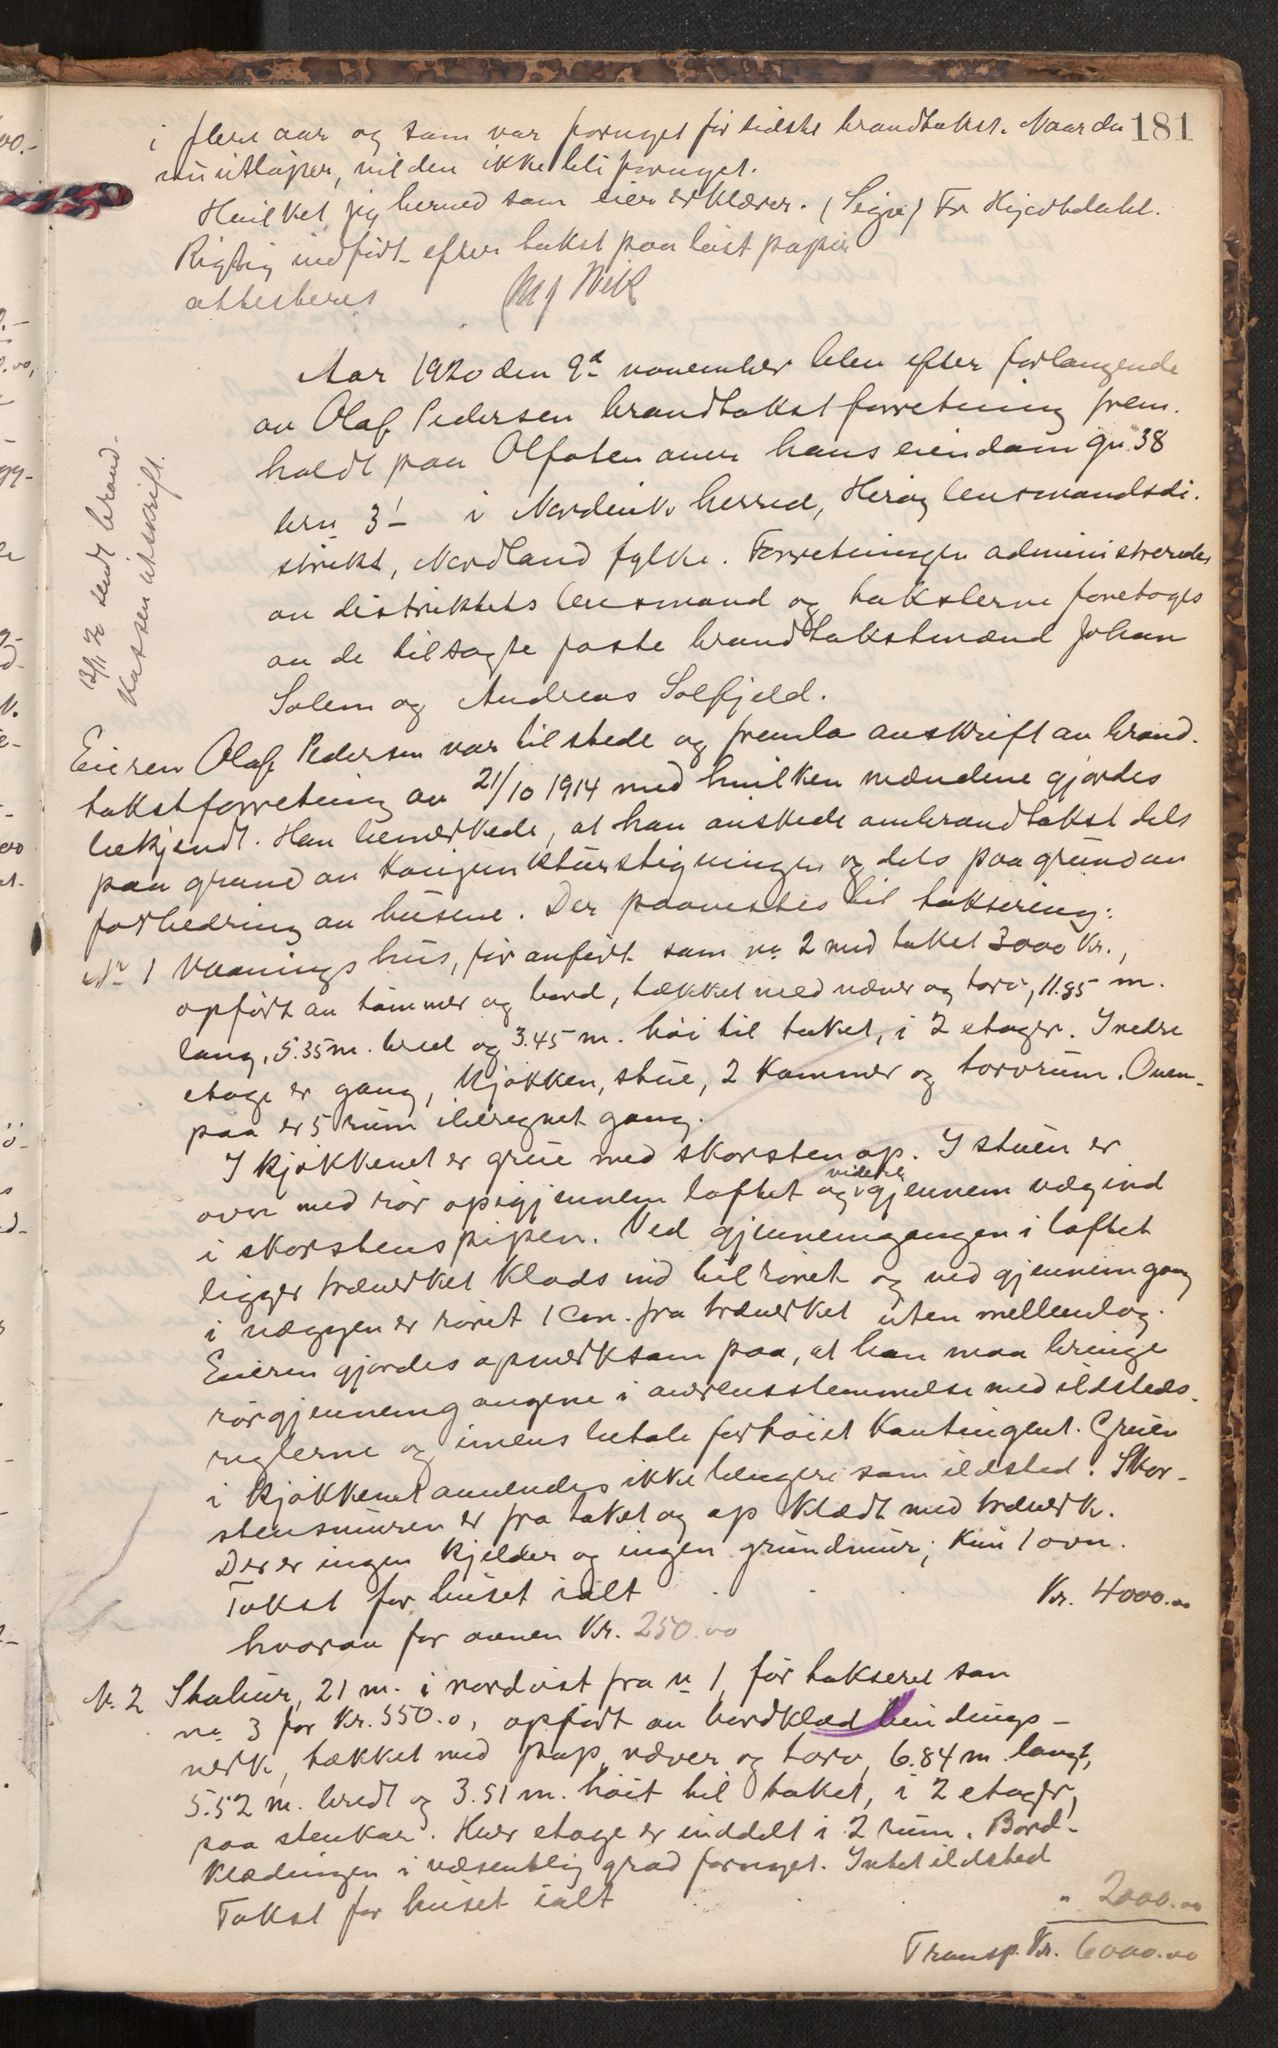 181
i flere aar og som var fornyet før sidste brandtakst. Naar den
nu utløper, vil den ikke bli fornyet.
Hvilket jeg herved som eier erklærer. (Sign) Fr Hjertdahl.
Rigtig indført efter takst paa løst papir
attesteres
Aar 1920 den 9d november blev efter forlangende
av Olaf Pedersen brandtakstforretning frem-
holdt paa Olfoten over hans eiendom gn. 38
brn 3! i Nordvik herred, Herøy lensmandsdi-
strikt, Nordland fylke. Forretningen administreredes
av distriktets lensmand og taksterne foretoges
av de tilsagte faste brandtakstmænd Johan
Solem og Andreas Solfjeld.
13/11 20 sendt brand-
kassen utskrift.
Eieren Olaf Pedersen var tilstede og fremla avskrift av brand-
takstforretning av 21/10 1914 med hvilken mændene gjordes
bekjendt. Han bemerkede, at han ønskede ombrandtakst dels
paa grund av konjunkturstigningen og dels paa grund av
forbedring av husene. Der paavistes til taksering:
No 1 Vaaningshus, før anført som no 2 med takst 3000 Kr.,
opført av tømmer og bord, tækket med næver og torv, 11.85 m.
lang, 5.35 m. bred og 3.45 m. høi til taket, i 2 etager. I nedre
etage er gang, kjøkken, stue, 2 kammer og torvrum. Oven-
paa er 5 rum iberegnet gang.
I kjøkkenet er grue med skorsten op. I stuen er
ovn med rør op igjennem loftet og videre gjennem væg ind
i skorstenspipen. Ved gjennemgangen i loftet
ligger træverket klods ind til røret og ved gjennemgang
i væggen er røret 1 cm. fra træverket uten mellemlag.
Eieren gjordes opmerksom paa, at han maa bringe
rørgjennemgangene i overensstemmelse med ildsteds-
reglerne og imens betale forhøiet kontingent. Gruen
i kjøkkenet anvendes ikke længere som ildsted. Skor-
stensmuren er fra taket og op klædt med træverk.
Der er ingen kjelder og ingen grundmur; kun 1 ovn.
Takst for huset ialt Kr. 4000.00
hvorav for ovnen Kr. 250.00
No. 2 Stabur, 21 m. i nordvest fra no 1, før taksert som
no 3 for Kr. 550.0, opført av bordklæd bindings-
verk, tækket med pap, næver og torv, 6.84 m. langt,
5.52 m. bredt og 3.51 m. høit til taket, i 2 etager,
paa stenkar. Hver etage er inddelt i 2 rum. Bord-
klædingen i væsentlig grad fornyet. Intet ildsted
Takst for huset ialt " 2000.00
Transp. Kr. 6000.00